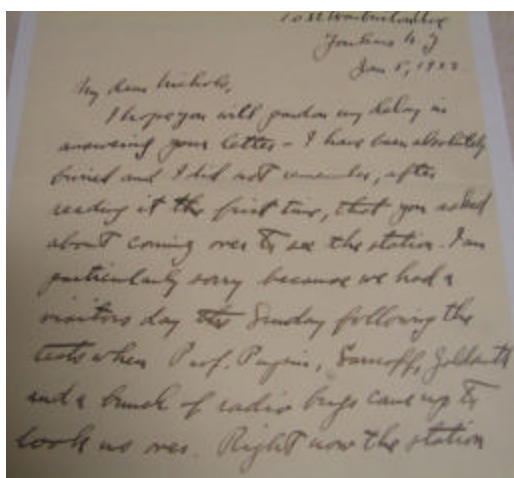 Yonkers N Y
Jan 5, 1922
My dear Nichols,
I hope you will pardon my delay in
answering your letter - I have been absolutely
buried and I did not remember, after
reading it the first time, that you asked
about coming over to see the station. I am
particularly sorry because we had a
visitors day the Sunday following the
tests when Prof. Pupin, Sarnoff, Goldsmith
and a bunch of radio bugs came up to
look us over. Right now the station